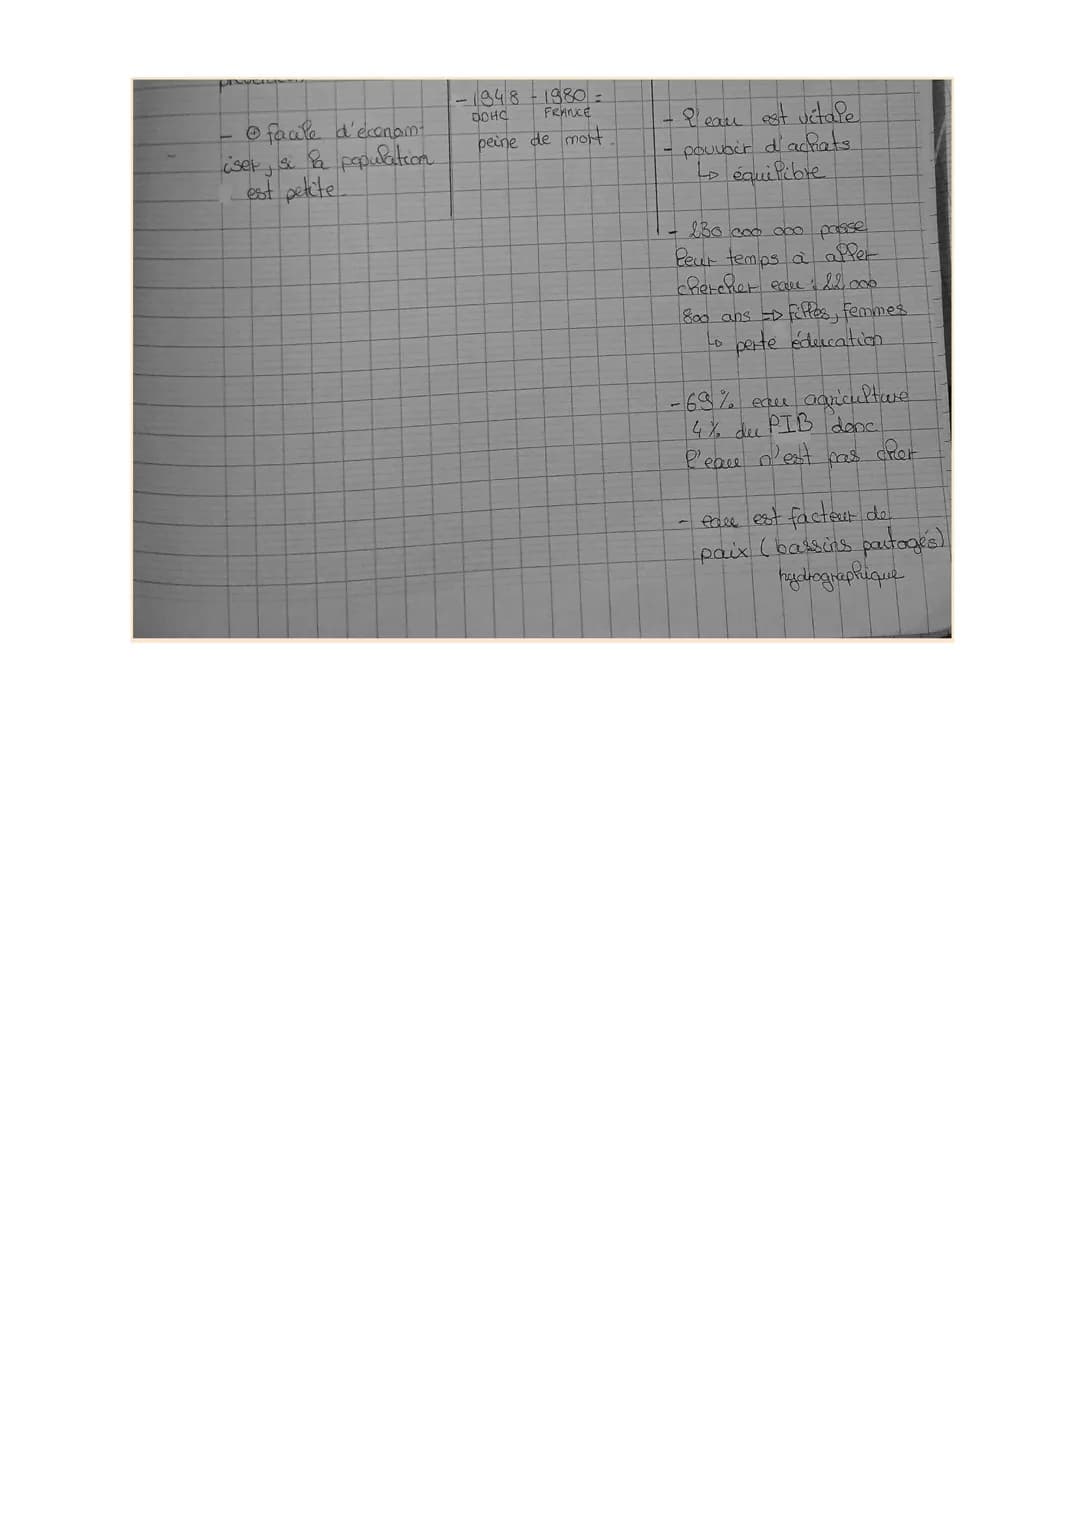 - ⊕ facile d'économ-
iser, si la population
est petite.
- 1948 - 1980 =
DDHC FRANCE
peine de mort.
- l'eau est vitale
- pouvoir d'achats
↳ équilibre
- 230 000 000 passe
leur temps à aller
chercher eau : 22 000
800 ans => filles, femmes
↳ perte éducation
- 69% eau agriculture
4% du PIB donc
l'eau n'est pas cher
- eau est facteur de
paix (bassins partagés)
hydrographique